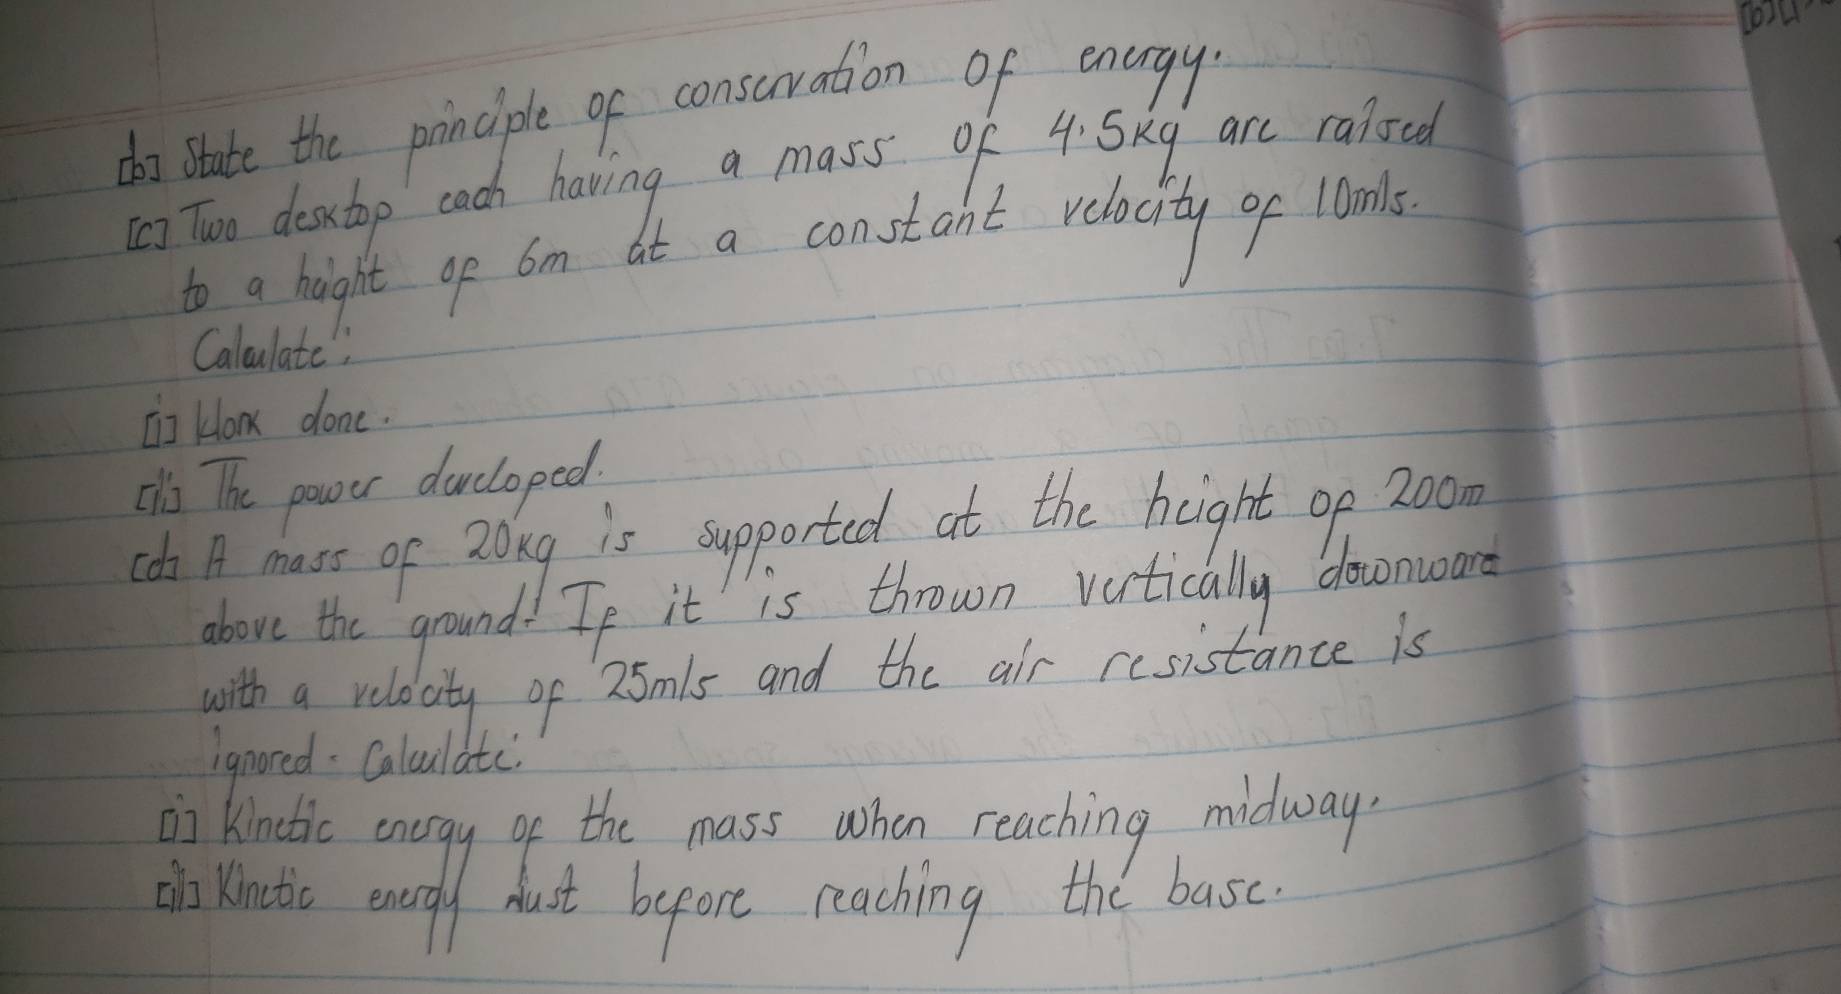 [b] State the principle of conservation of energy.
[c] Two desktop each having a mass of 4.5kg are raised
to a height of 6m at a constant velocity of 10m/s.
Calculate:
[i] Work done.
[ii] The power developed.
[d] A mass of 20kg is supported at the height of 200m
above the ground. If it is thrown vertically downward
with a velocity of 25m/s and the air resistance is
ignored. Calculate:
[i] Kinetic energy of the mass when reaching midway.
[ii] Kinetic energy Just before reaching the base.